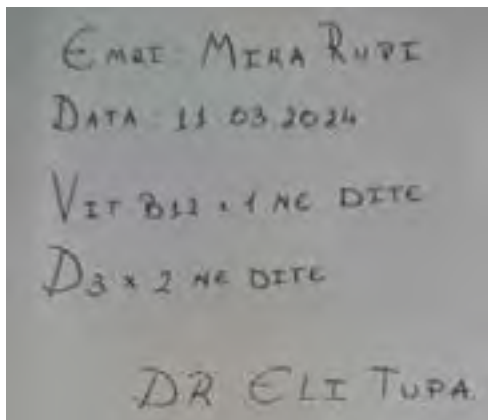 EMRI: MIRA RUPI
DATA: 11.03.2024
VIT B12 x 1 NE DITE
D3 x 2 NE DITE
DR ELI TUPA